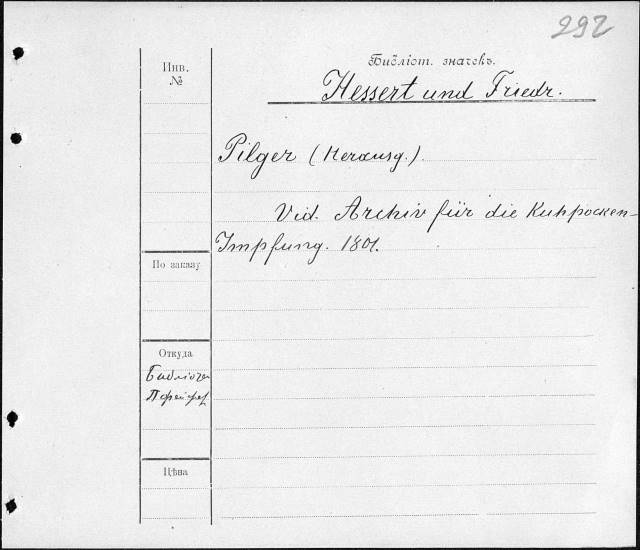 292
Инв.
№
Библіот. значекъ.
Hessert und Friedr.
Pilger (Herausg.).
Vid. Archiv für die Kuhpocken-
Impfung. 1801.
По заказу
Откуда
Цѣна